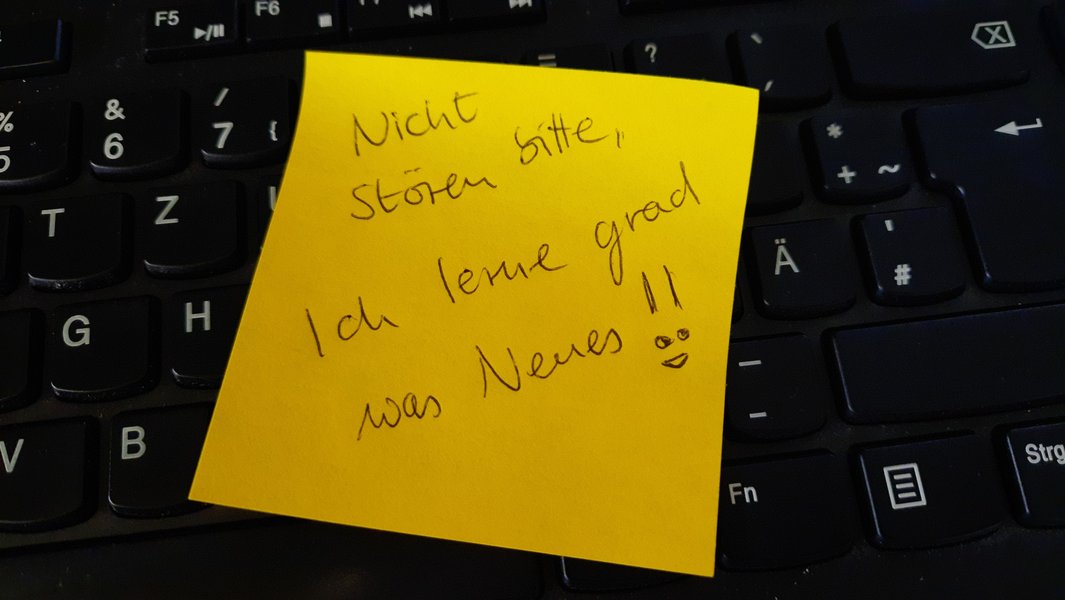 F5
F6
%
5
&
6
/
7
{
=
?
`
´
*
+
~
T
Z
Ä
'
#
G
H
V
B
Fn
Strg
Nicht
stören bitte,,
Ich lerne grad
was Neues !!